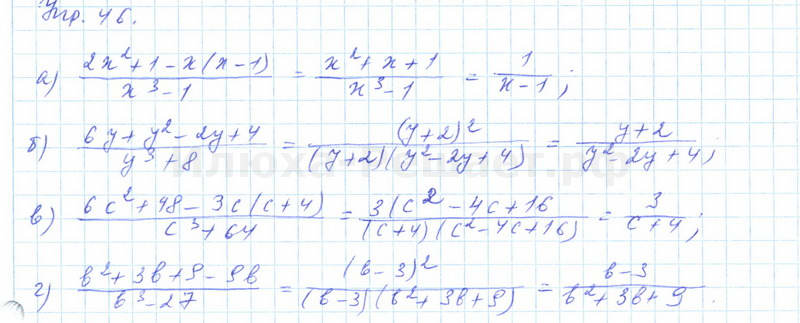 Упр. 46.
а) (2x²+1-x(x-1))/(x³-1) = (x²+x+1)/(x³-1) = 1/(x-1);
б) (6y+y²-2y+4)/(y³+8) = (y+2)²/((y+2)(y²-2y+4)) = (y+2)/(y²-2y+4);
в) (6c²+48-3c(c+4))/(c³+64) = 3(c²-4c+16/((c+4)(c²-4c+16)) = 3/(c+4);
г) (b²+3b+9-9b)/(b³-27) = (b-3)²/((b-3)(b²+3b+9)) = (b-3)/(b²+3b+9).